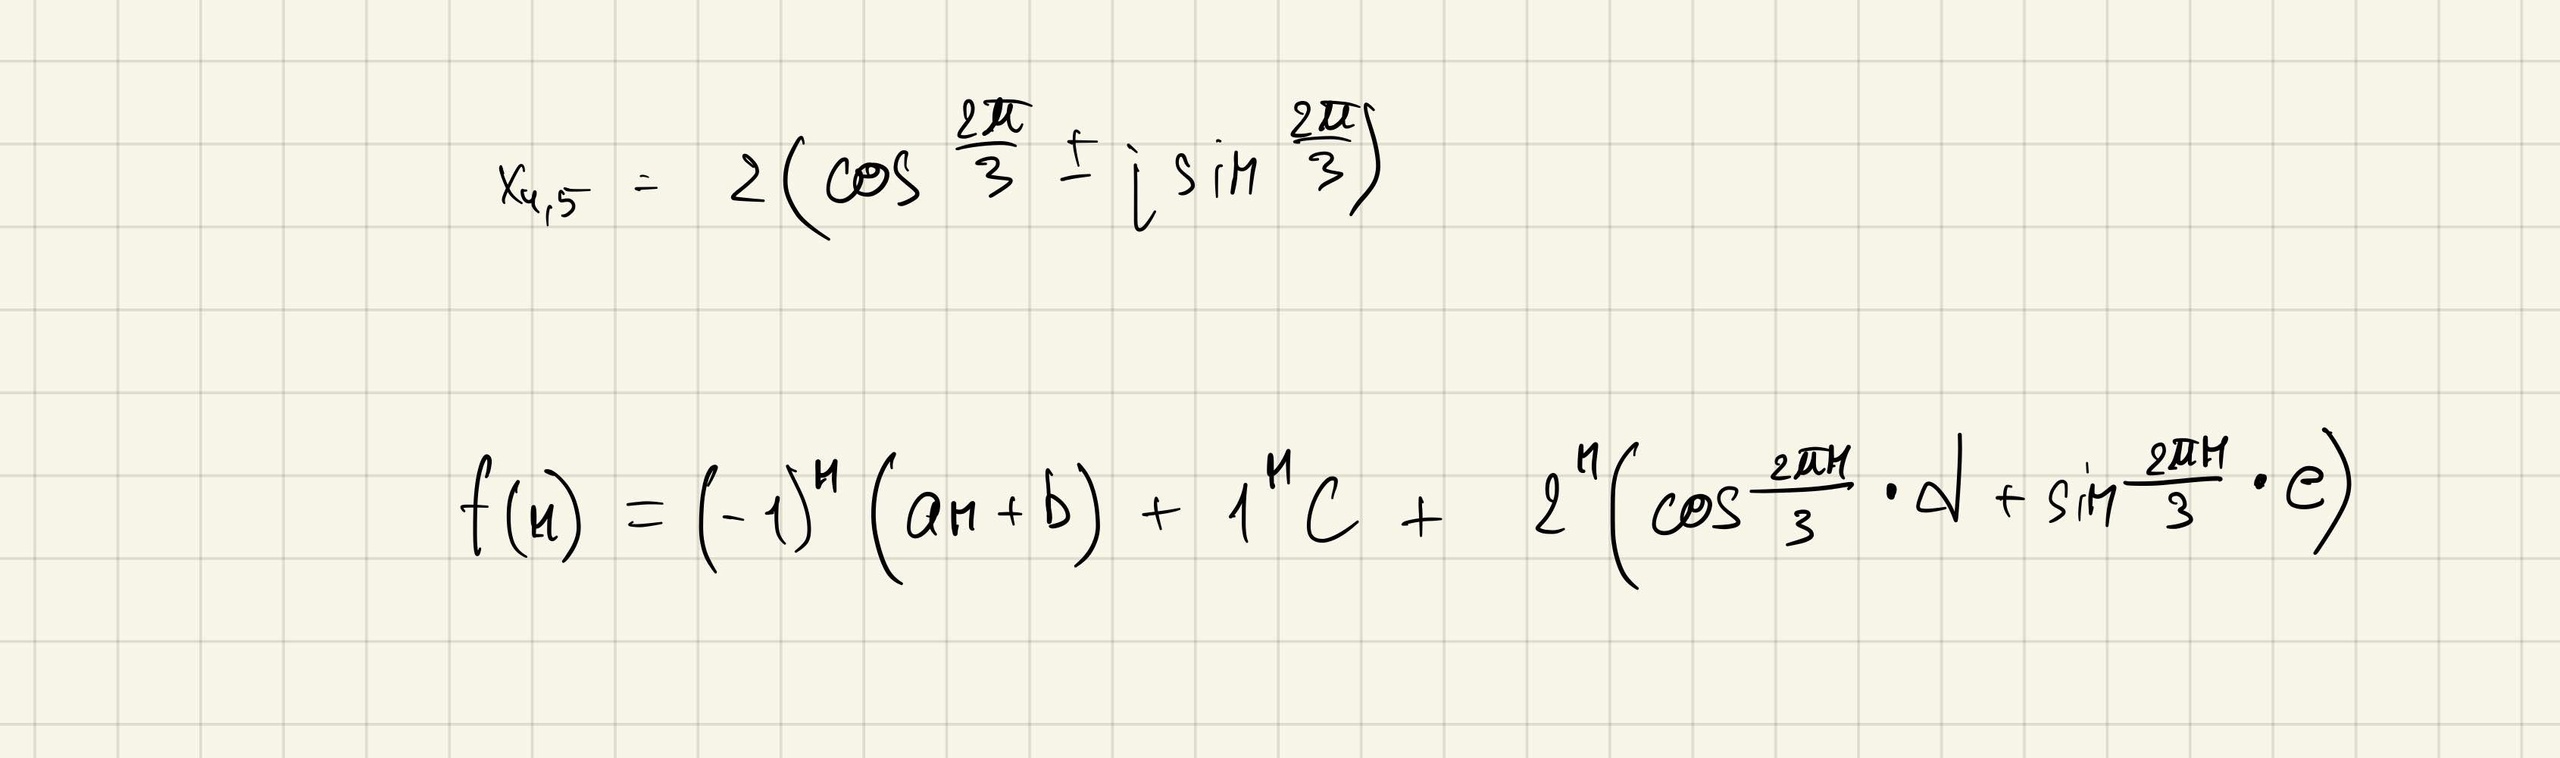 x₄,₅ = 2(cos 2π/3 ± i sin 2π/3)
f(n) = (-1)ⁿ (an + b) + 1ⁿ C + 2ⁿ (cos 2πn/3 · d + sin 2πn/3 · e)